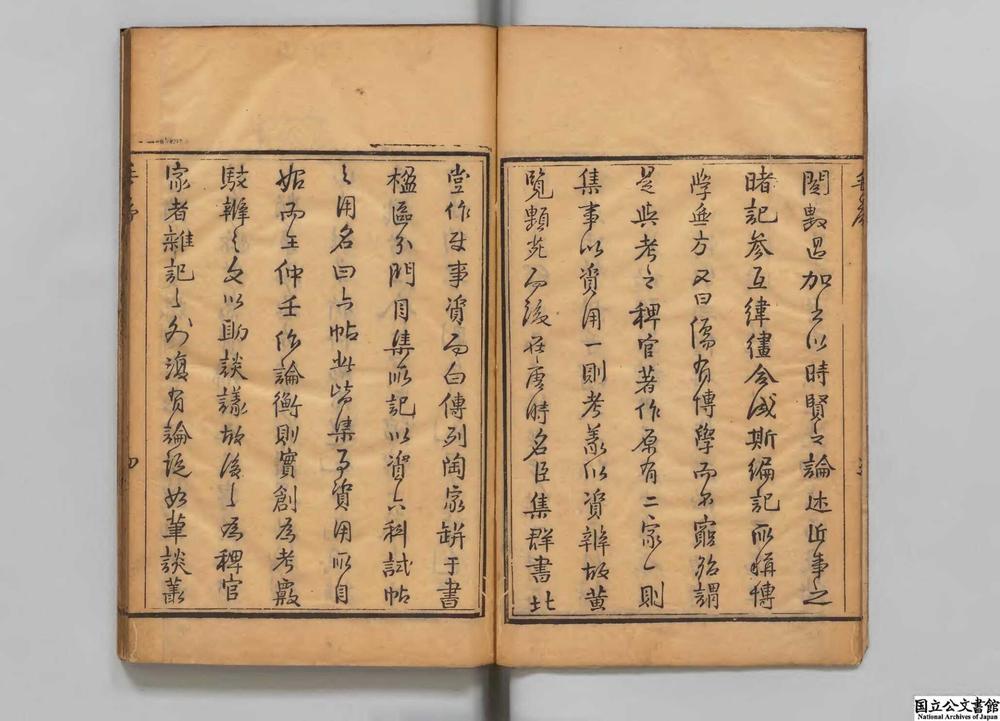 閱數過加之以時賢之論述近事之
睹記參互緯繣合成斯編記所稱博
學無方又曰儒有博學而不窮殆謂
是與考之稗官著作原有二家一則
集事以資用一則考義以資辨故黃
覽類苑而後在唐時名臣集群書北
堂作史事資而白傳列陶家缾于書
楹區分門目集所記以資六科試帖
之用名曰六帖此皆集事資用所自
始而王仲壬作論衡則實創為考覈
駁辨之文以助談議故後之為稗官
家者雜記之外復有論說如筆談叢
国立公文書館
National Archives of Japan